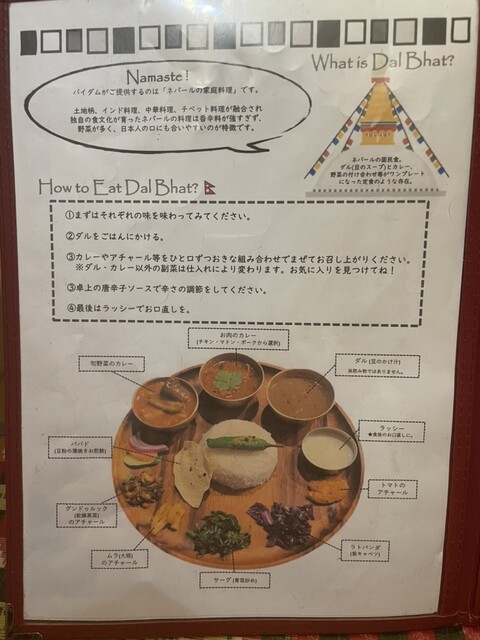 Namaste!
パイダムがご提供するのは「ネパールの家庭料理」です。
土地柄、インド料理、中華料理、チベット料理が融合され
独自の食文化が育ったネパールの料理は香辛料が強すぎず、
野菜が多く、日本人の口にも合いやすいのが特徴です。
What is Dal Bhat?
ネパールの国民食。
ダル(豆のスープ)とカレー、
野菜の付け合わせ等がワンプレート
になった定食のような存在。
How to Eat Dal Bhat?
①まずはそれぞれの味を味わってみてください。
②ダルをごはんにかける。
③カレーやアチャール等をひと口ずつおきな組み合わせでまぜてお召し上がりください。
※ダル・カレー以外の副菜は仕入れにより変わります。お気に入りを見つけてね！
③卓上の唐辛子ソースで辛さの調節をしてください。
④最後はラッシーでお口直しを。
お肉のカレー
(チキン・マトン・ポークから選択)
旬野菜のカレー
ダル (豆のかけ汁)
※飲み物ではありません。
ラッシー
★食後のお口直しに。
パパド
(豆粉の薄焼きお煎餅)
トマトの
アチャール
グンドゥルック
(乾燥高菜)
のアチャール
ムラ(大根)
のアチャール
ラトバンダ
(紫キャベツ)
サーグ (青菜炒め)